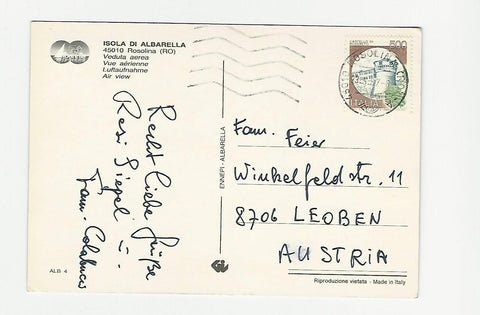 ISOLA DI ALBARELLA
45010 Rosolina (RO)
Veduta aerea
Vue aérienne
Luftaufnahme
Air view
500
ITALIA
Recht liebe Grüße
Resi Siegel u.
Fam.
ENNEPI - ALBARELLA
Fam. Feier
Winkelfeldstr. 11
8706 LEOBEN
AUSTRIA
ALB 4
Riproduzione vietata - Made in Italy